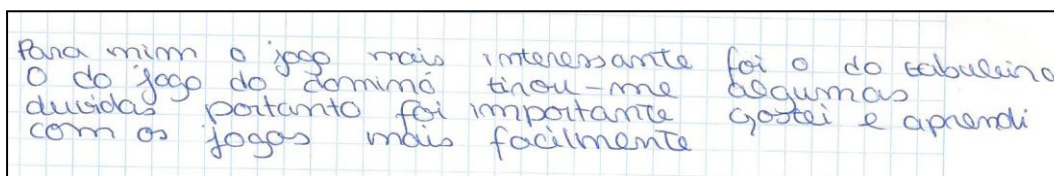 Para mim o jogo mais interessante foi o do tabuleiro
O do jogo do dominó tirou-me algumas
duvidas portanto foi importante gostei e aprendi
com os jogos mais facilmente